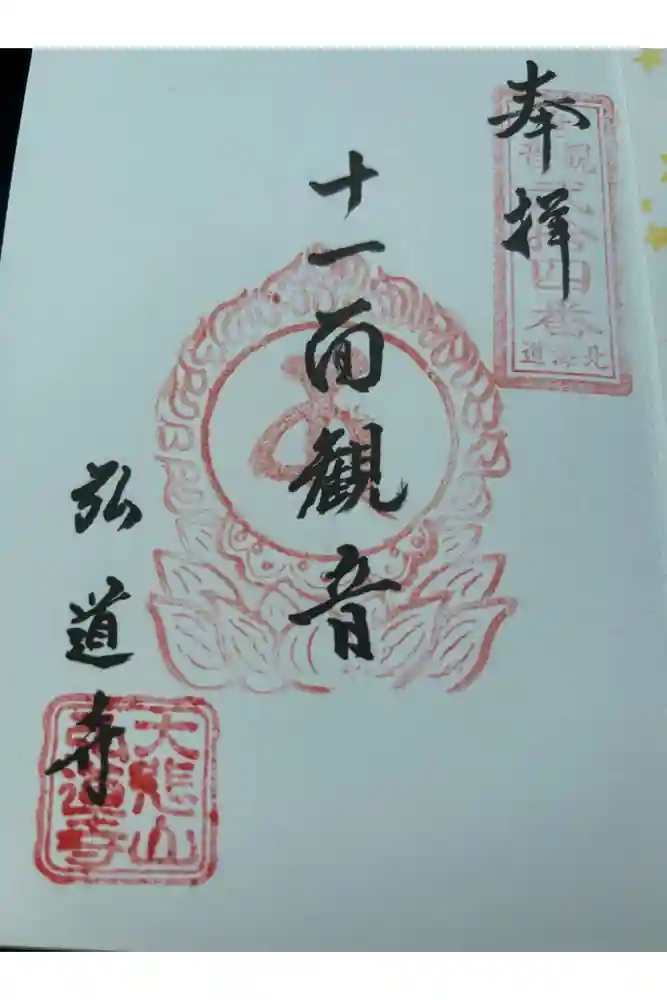 奉拝
北海道
観音
弐拾四番
十一面観音
弘道寺
大悲山
弘道寺